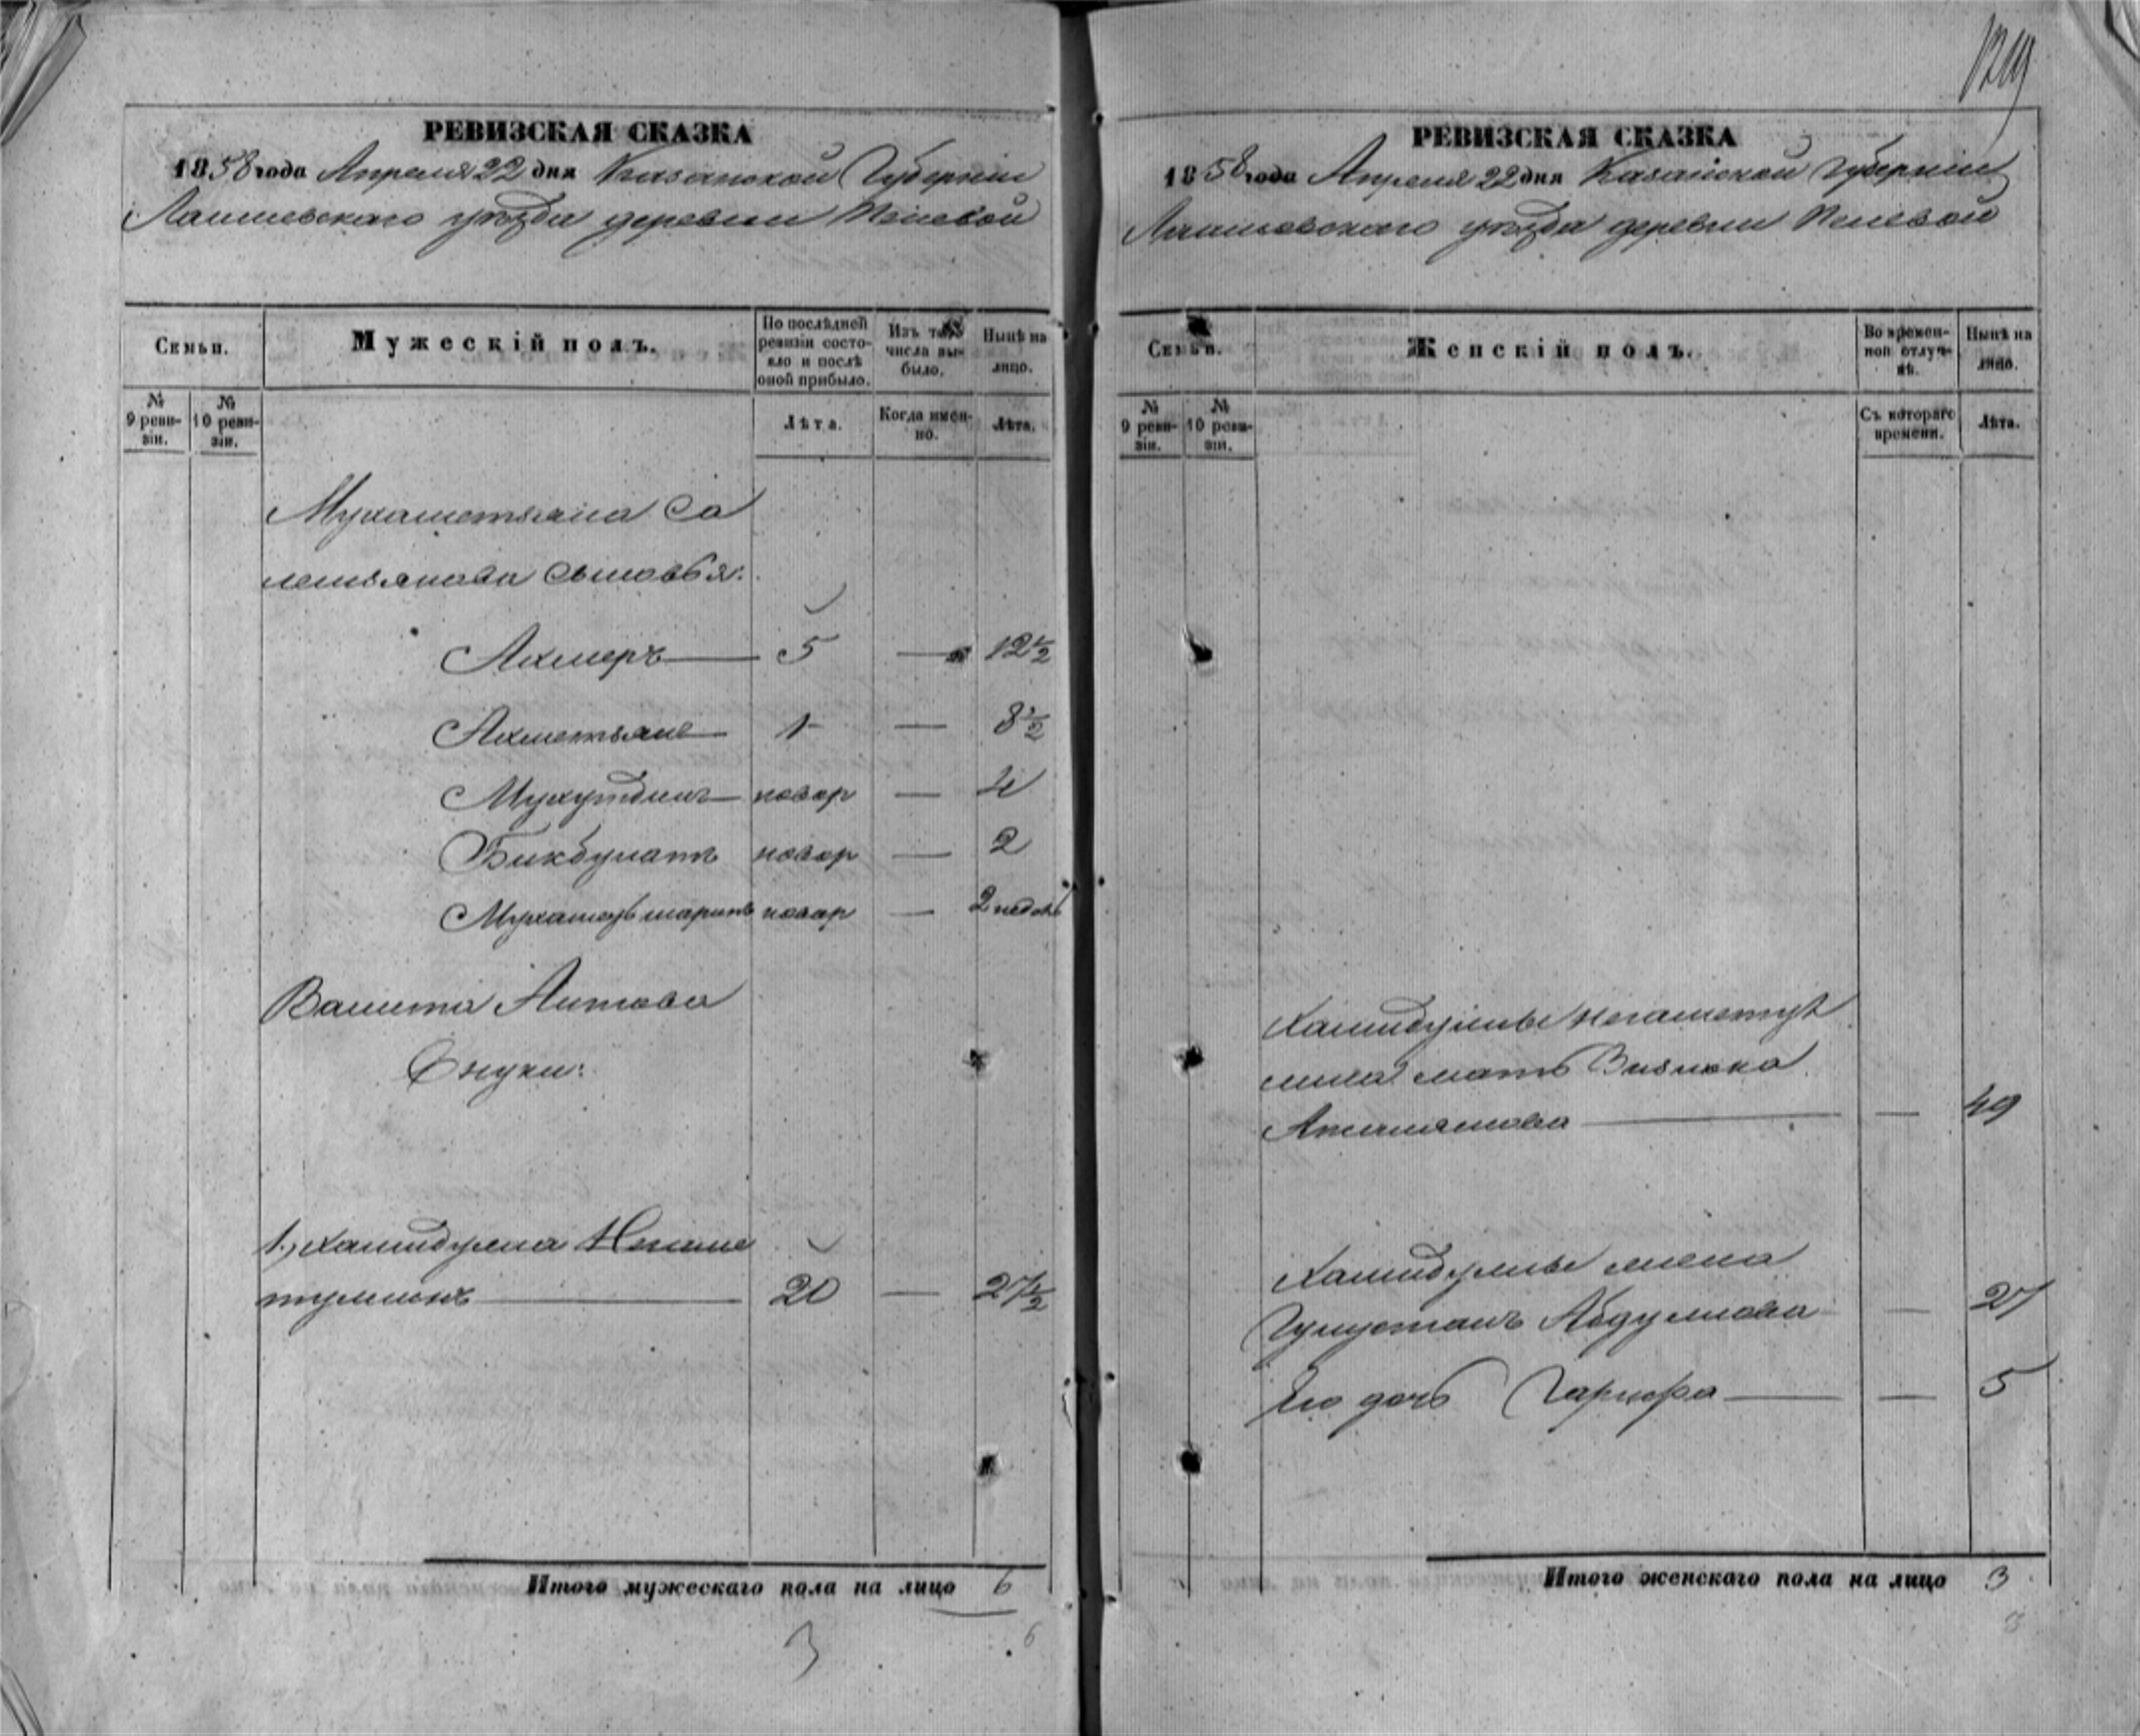 РЕВИЗСКАЯ СКАЗКА
1858 года Апреля 22 дня Казанской Губернiи
Лаишевскаго уѣзда деревни
Семьи.
Мужескiй полъ.
По послѣдней ревизiи состояло и послѣ оной прибыло.
Изъ того числа выбыло.
Нынѣ на лицо.
№ 9 ревизiи.
№ 10 ревизiи.
Лѣта.
Когда именно.
Лѣта.
Мухаметзяна Са
лемзянова сыновья:
Ахмеръ — 5 — 12½
Ахметзянъ — 1 — 8½
Мухутдинъ — новор — 4
Бикбулатъ новор — 2
Мухаметъ шарипъ новор — 2 недѣль
Вашита Аитова
Внуки:
1, Хамидулла Негаме
туллинъ — 20 — 27½
Итого мужескаго пола на лицо 6
3
6
1219
РЕВИЗСКАЯ СКАЗКА
1858 года Апреля 22 дня Казанской Губернiи
Лаишевскаго уѣзда деревни
Семьи.
Женскiй полъ.
Во временной отлучкѣ.
Нынѣ на лицо.
№ 9 ревизiи.
№ 10 ревизiи.
Съ котораго времени.
Лѣта.
Хамидуллы Негаметул
лина мать
— — 49
Хамидуллы жена
Гулустанъ Абдуллова — 27
Его дочь Гарифа — — 5
Итого женскаго пола на лицо 3
3